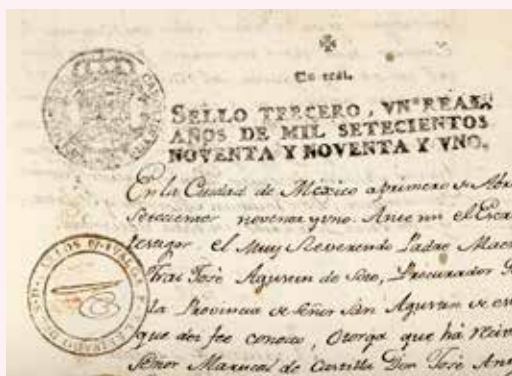 Un real.
SELLO TERCERO, VN REAL,
AÑOS DE MIL SETECIENTOS
NOVENTA Y NOVENTA Y VNO.
En la Ciudad de Mexico a primero de Abr
Setecientos noventa y uno. Ante mi el Escri
testigos el Muy Reverendo Padre Mae
Frai José Agustin de Soto, Procurador
la Provincia de Señor San Agustin de es
que doi fee conosco, Otorga que há reciv
Señor Mariscal de Castilla Don José An